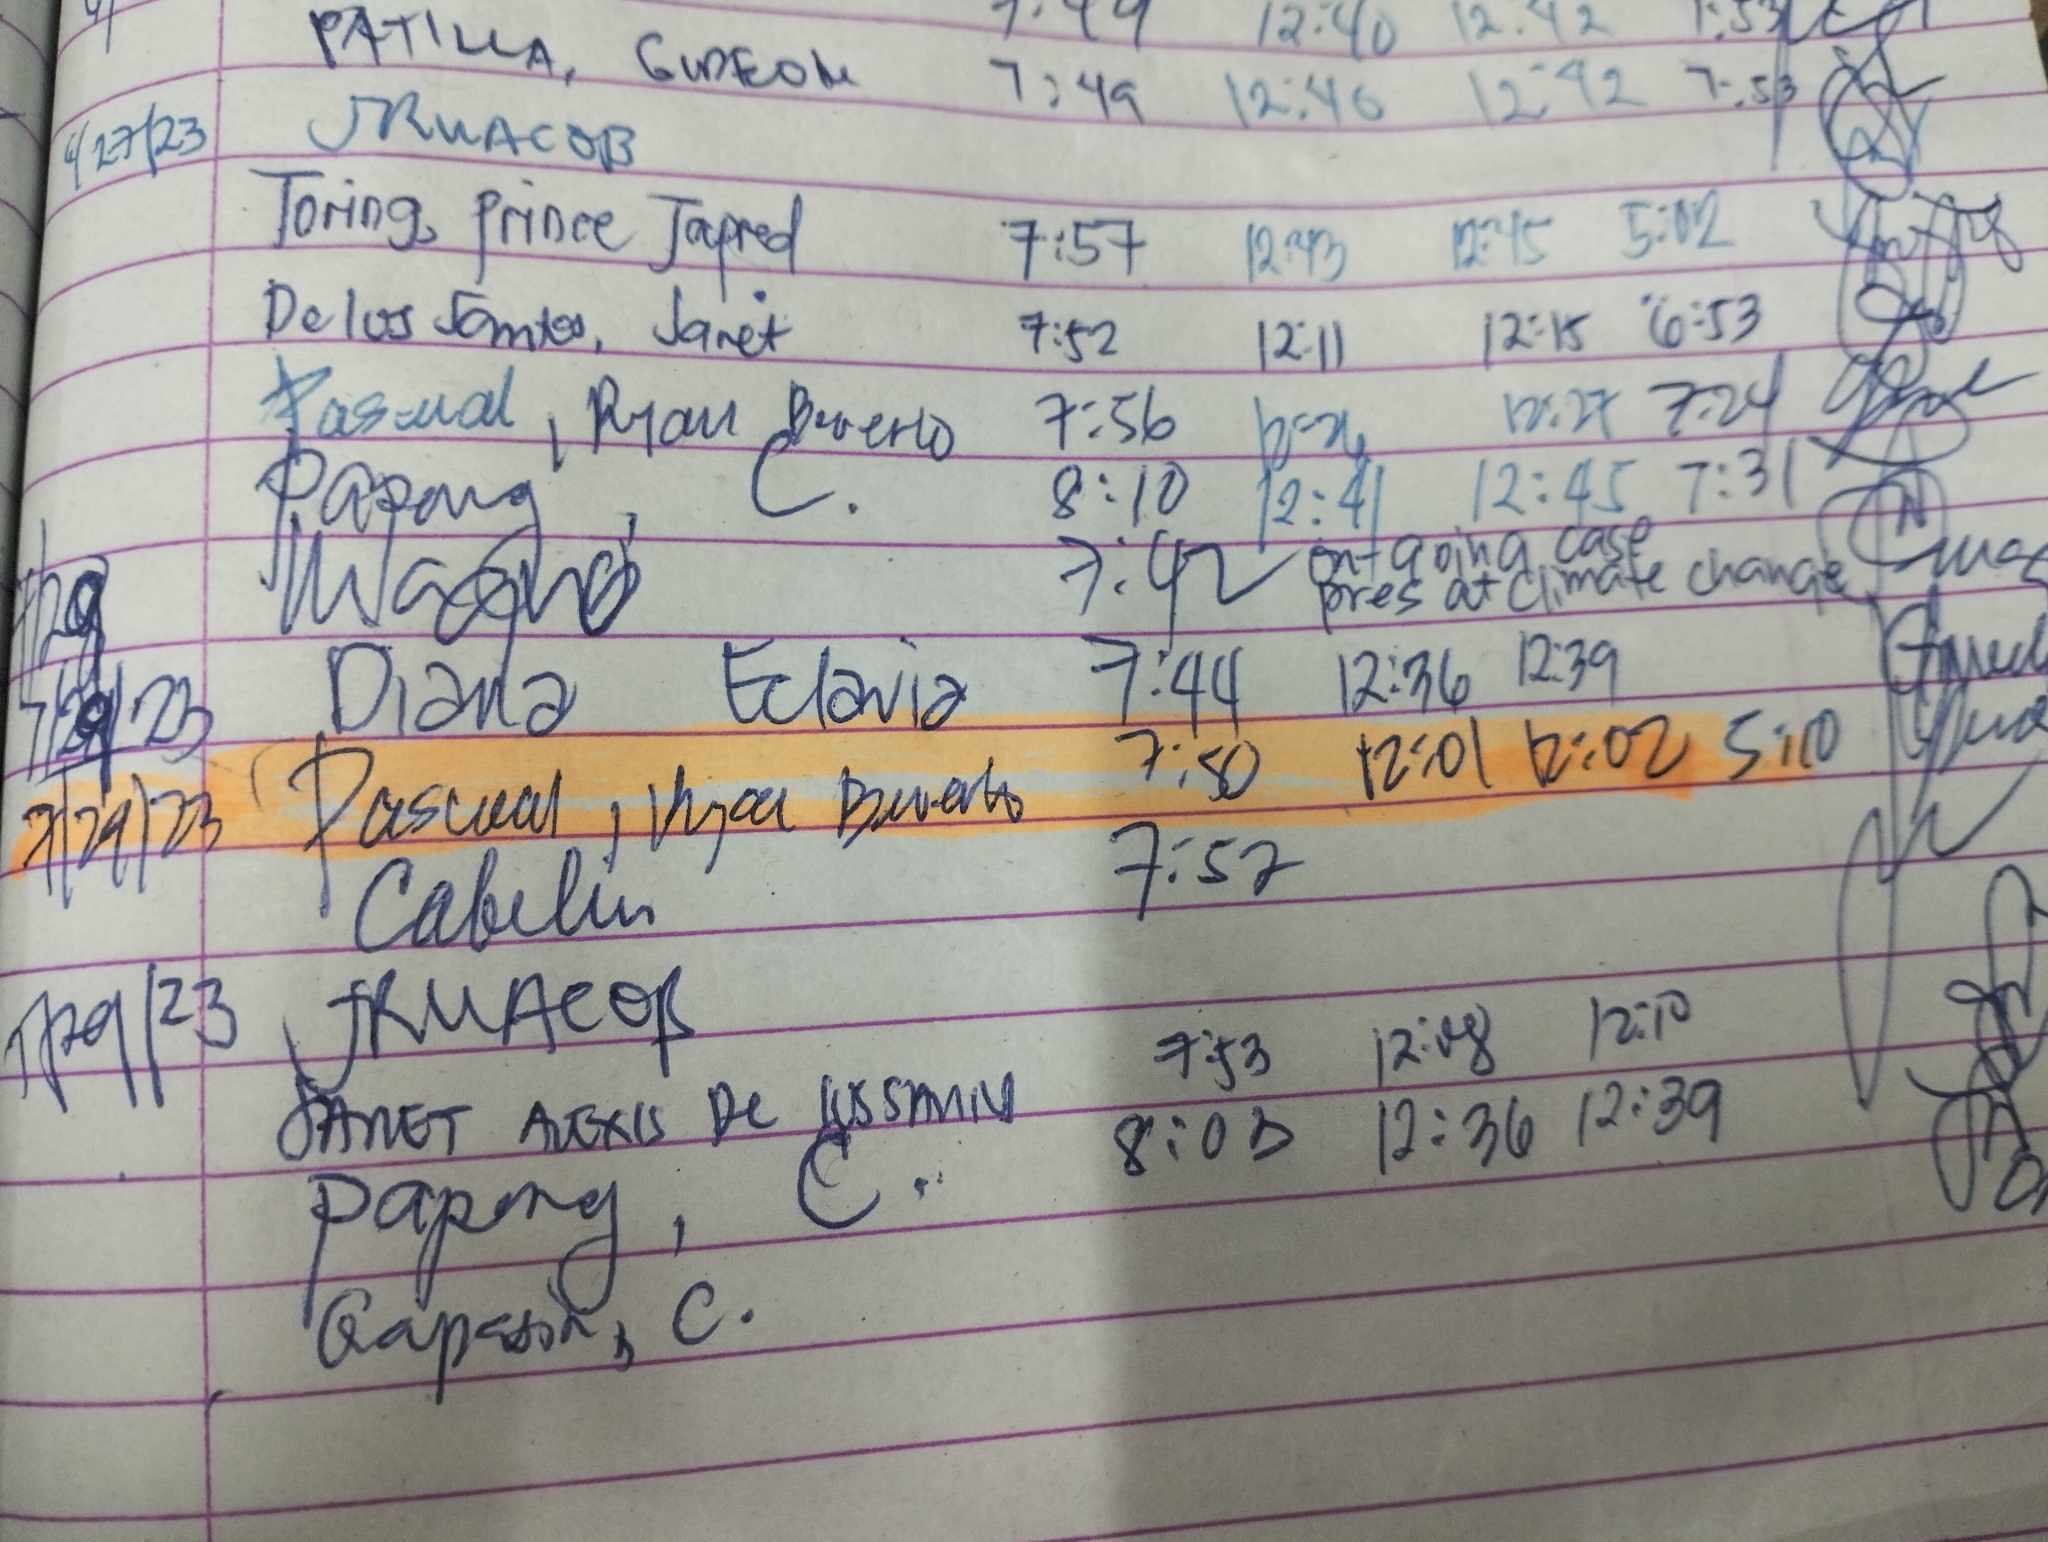 7:49 12:40 12:42 7:53
PATILLA, GIDEON 7:49 12:46 12:42 7:53
/27/23 JRUACOB
Toring, Prince Japred 7:57 12:43 12:45 5:02
De los Santos, Janet 7:52 12:11 12:15 6:53
Pascual, Ryan Buverto 7:56 12:27 7:24
Papong, C. 8:10 12:41 12:45 7:31
7/29 7:42 on-going case
pres at climate change
7/29/23 Diana Eclavia 7:44 12:36 12:39
7/29/23 Pascual, Ryan Buverto 7:50 12:01 12:02 5:10
Cabelin 7:52
7/29/23 JRUACOB
JANET ALEXIS DE 7:53 12:08 12:10
Papong, C. 8:03 12:36 12:39
Gapasin, C.